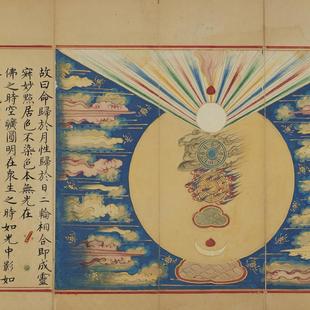 故曰命歸於月性歸於日二輪相合即成靈
寂妙點居色不染色本無光在
佛之時空曠圓明在衆生之時如光中影如